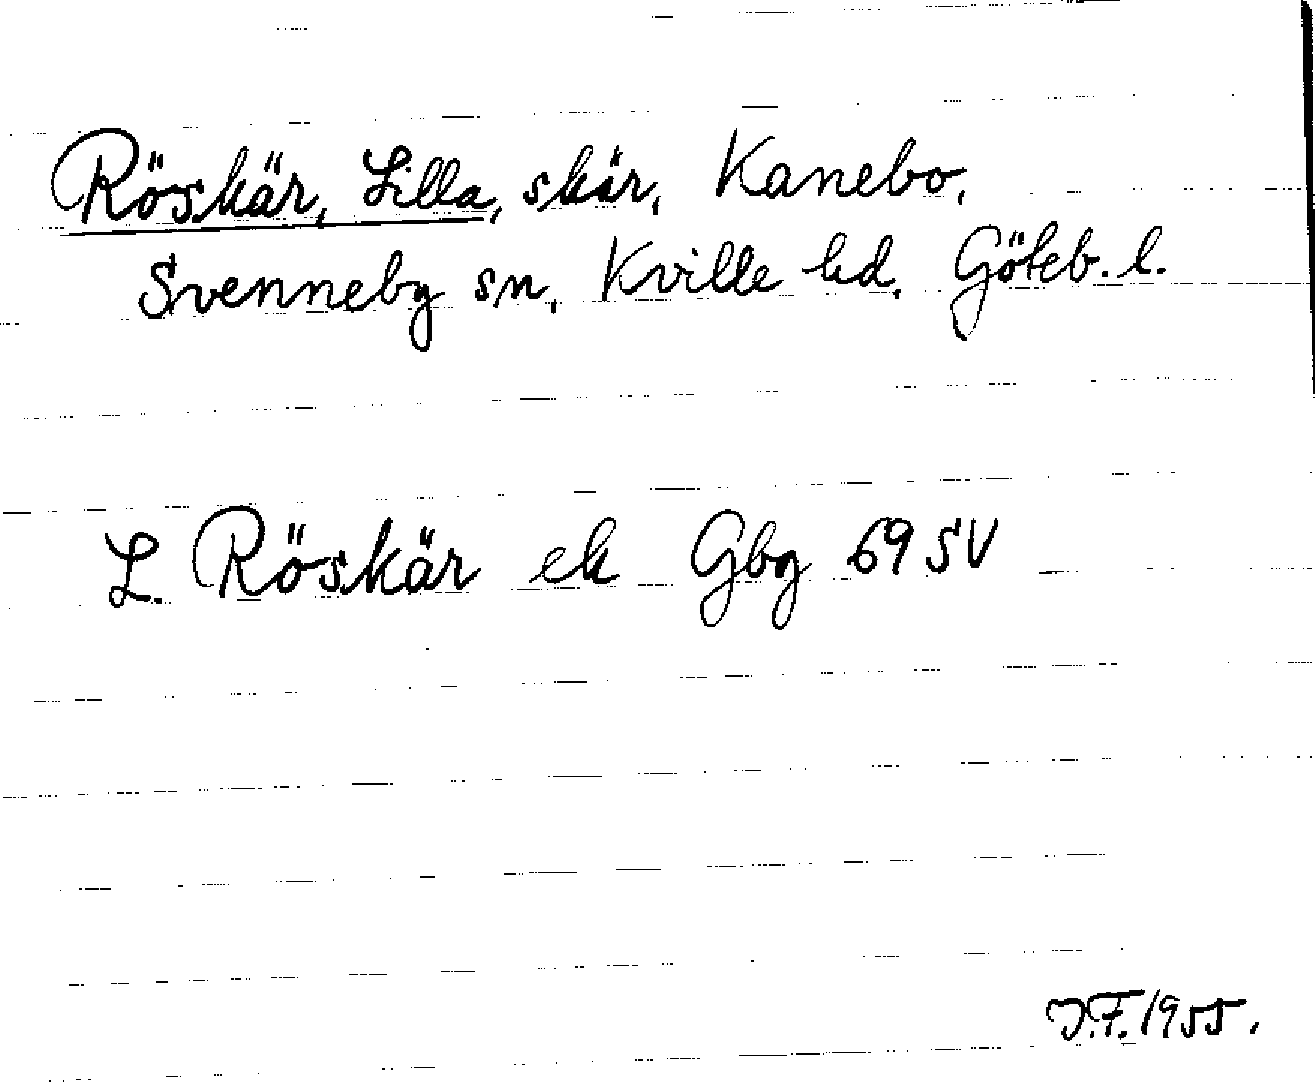 Röskär, Lilla, skär, Kanebo,
Svenneby sn, Kville hd, Göteb. l.
L. Röskär ek Gbg 69 SV
J.F. 1955.